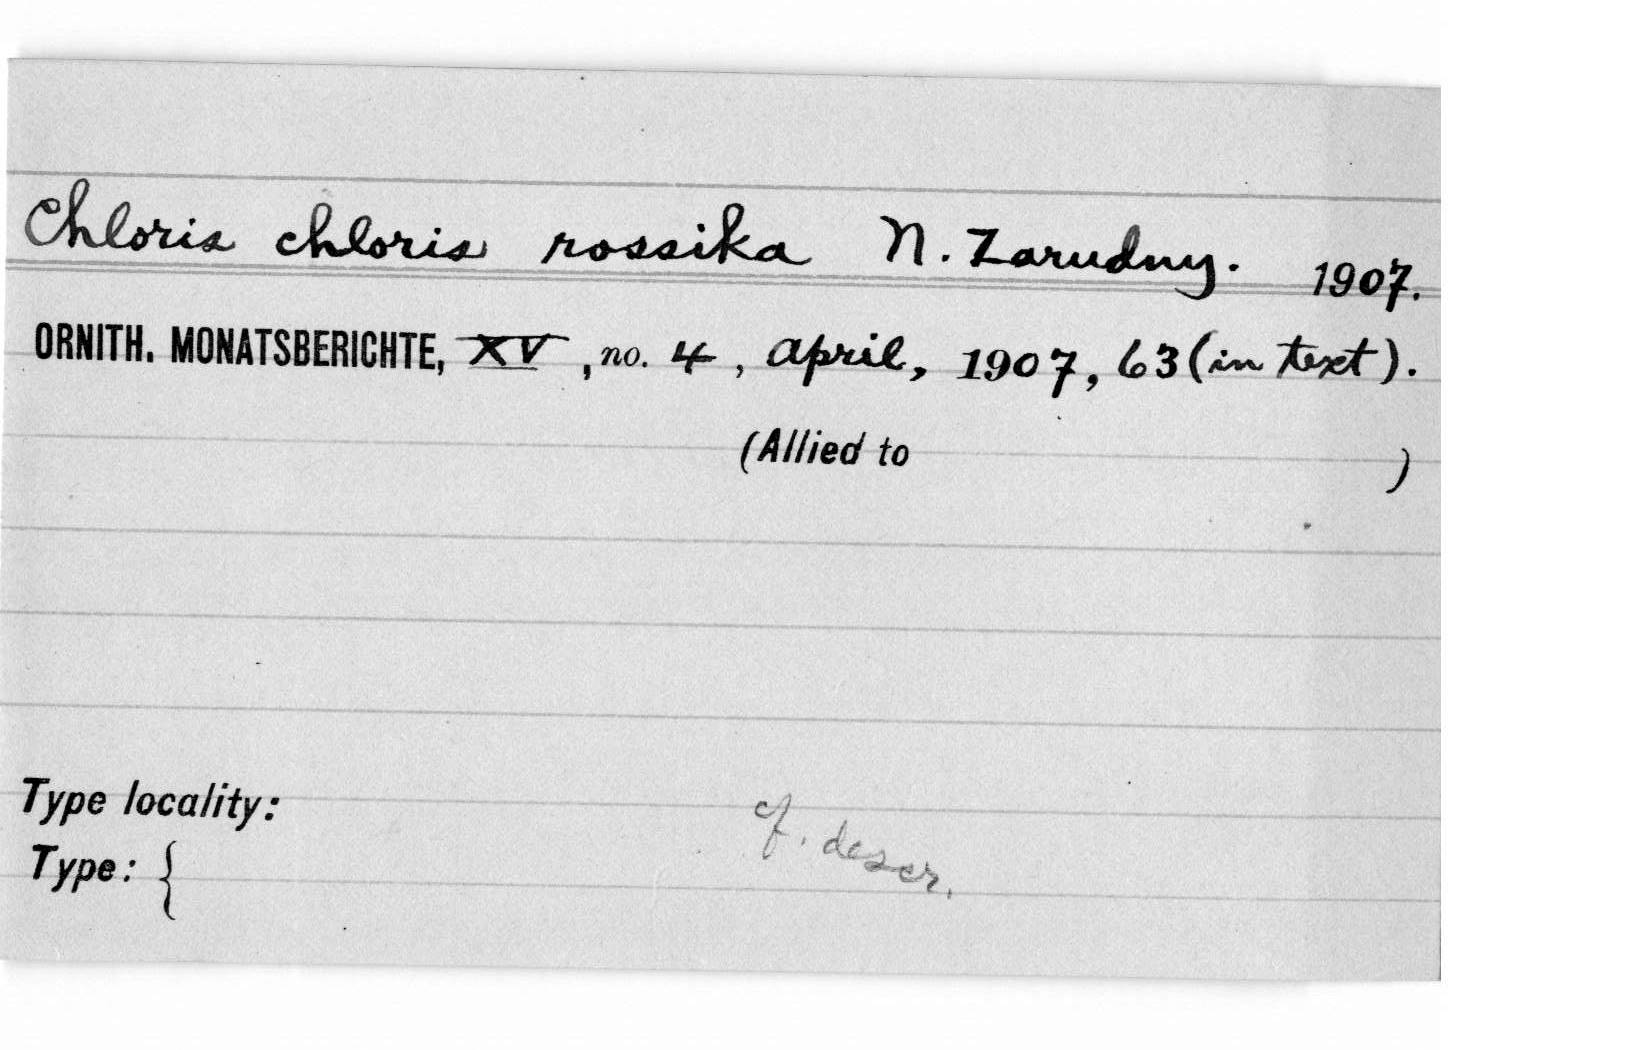 Chloris chloris rossika N. Zarudny. 1907.
ORNITH. MONATSBERICHTE, XV, no. 4, April, 1907, 63 (in text).
(Allied to )
Type locality:
cf. descr.
Type: {